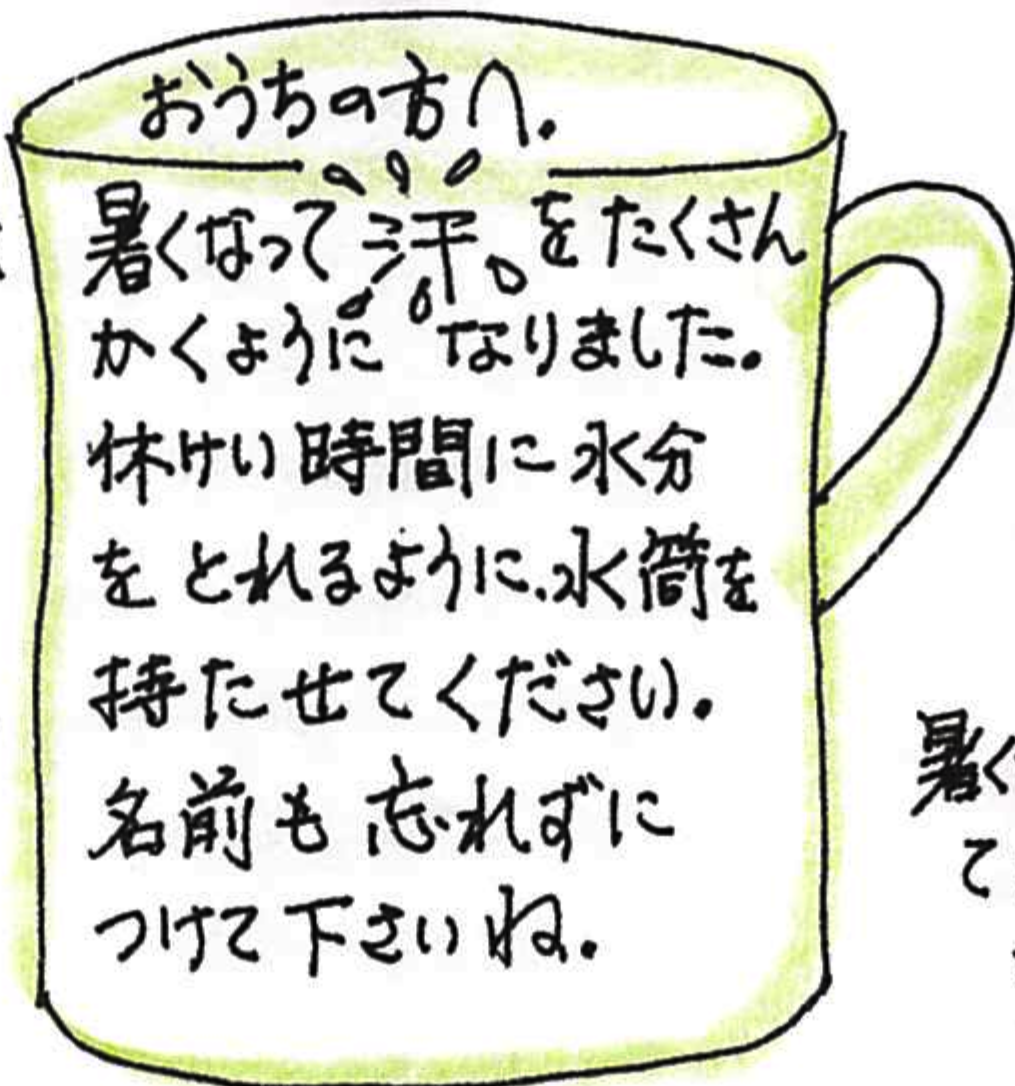 おうちの方へ.
暑くなって汗をたくさん
かくように なりました。
休けい時間に水分
をとれるように、水筒を
持たせてください。
名前も忘れずに
つけて下さいね。
暑く
て